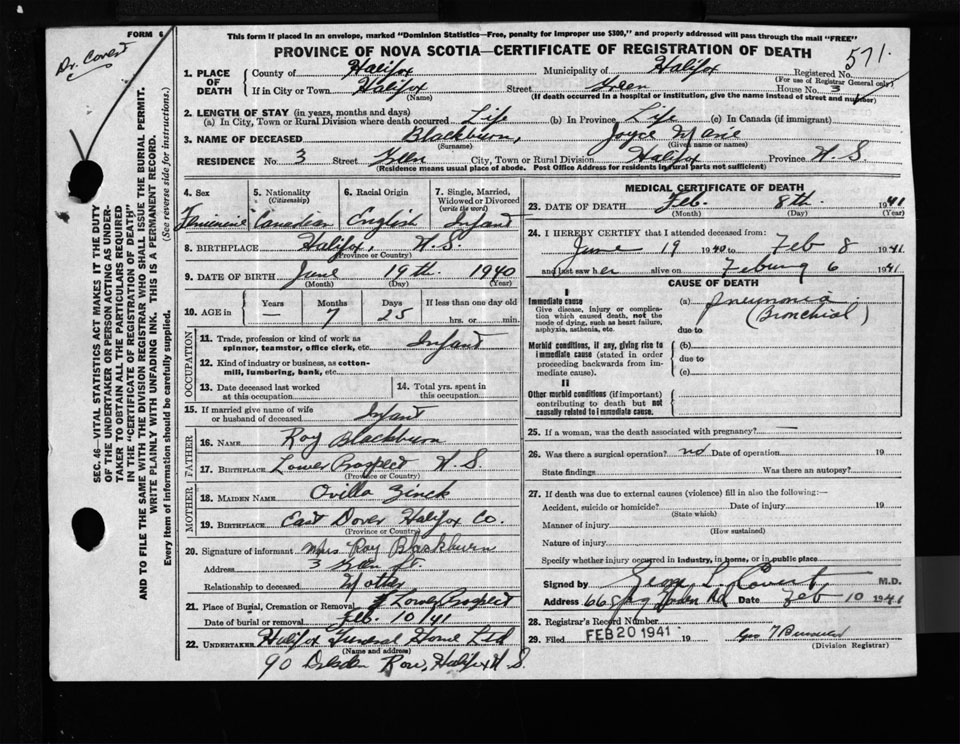 This form if placed in an envelope, marked "Dominion Statistics—Free, penalty for improper use $300," and properly addressed will pass through the mail "FREE"
FORM 6
Dr. Covert
PROVINCE OF NOVA SCOTIA—CERTIFICATE OF REGISTRATION OF DEATH
571
1. PLACE OF DEATH
County of Halifax Municipality of Halifax Registered No.
(For use of Registrar General only)
If in City or Town Halifax Street Glen House No. 3
(Name) (If death occurred in a hospital or institution, give the name instead of street and number)
2. LENGTH OF STAY (in years, months and days)
(a) In City, Town or Rural Division where death occurred Life (b) In Province Life (c) In Canada (if immigrant)
3. NAME OF DECEASED Blackburn, Joyce Marie
(Surname) (Given name or names)
RESIDENCE No. 3 Street Glen City, Town or Rural Division Halifax Province N.S
(Residence means usual place of abode. Post Office Address for residents in rural parts not sufficient)
4. Sex 5. Nationality (Citizenship) 6. Racial Origin 7. Single, Married, Widowed or Divorced (write the word)
Canadian English Infant
8. BIRTHPLACE Halifax, N.S.
(Province or Country)
9. DATE OF BIRTH June 19th. 1940
(Month) (Day) (Year)
10. AGE in Years Months Days If less than one day old
— 7 25 hrs. or min.
OCCUPATION
11. Trade, profession or kind of work as spinner, teamster, office clerk, etc. Infant
12. Kind of industry or business, as cotton-mill, lumbering, bank, etc.
13. Date deceased last worked at this occupation
14. Total yrs. spent in this occupation
15. If married give name of wife or husband of deceased Infant
FATHER
16. NAME Roy Blackburn
17. BIRTHPLACE Lower Prospect N.S.
(Province or Country)
MOTHER
18. MAIDEN NAME Ovilla Zinck
19. BIRTHPLACE East Dover Halifax Co.
(Province or Country)
20. Signature of informant Mrs Roy Blackburn
Address 3 Glen St.
Relationship to deceased Mother
21. Place of Burial, Cremation or Removal Lower Prospect
Date of burial or removal Feb. 10/41
22. UNDERTAKER Halifax Funeral Home Ltd
(Name and address)
90 Dresden Row, Halifax N.S.
MEDICAL CERTIFICATE OF DEATH
23. DATE OF DEATH Feb. 8th. 1941
(Month) (Day) (Year)
24. I HEREBY CERTIFY that I attended deceased from:
June 19 1940 to Feb 8 1941
and last saw her alive on 6 1941
CAUSE OF DEATH
I
Immediate cause
Give disease, injury or complication which caused death, not the mode of dying, such as heart failure, asphyxia, asthenia, etc.
(a) pneumonia
(Bronchial)
due to
Morbid conditions, if any, giving rise to immediate cause (stated in order proceeding backwards from immediate cause).
(b)
due to
(c)
II
Other morbid conditions (if important) contributing to death but not causally related to immediate cause.
25. If a woman, was the death associated with pregnancy? —
26. Was there a surgical operation? no Date of operation 19
State findings Was there an autopsy?
27. If death was due to external causes (violence) fill in also the following:—
Accident, suicide or homicide? Date of injury 19
(State which)
Manner of injury
(How sustained)
Nature of injury
Specify whether injury occurred in industry, in home, or in public place
Signed by Covert M.D.
Address 66 Spring Garden Rd Date Feb 10 1941
28. Registrar's Record Number
29. Filed FEB 20 1941 19
(Division Registrar)
SEC. 46—VITAL STATISTICS ACT MAKES IT THE DUTY
OF THE UNDERTAKER OR PERSON ACTING AS UNDER-
TAKER TO OBTAIN ALL THE PARTICULARS REQUIRED
IN THE "CERTIFICATE OF REGISTRATION OF DEATH"
AND TO FILE THE SAME WITH THE DIVISION REGISTRAR WHO SHALL ISSUE THE BURIAL PERMIT.
WRITE PLAINLY WITH UNFADING INK. THIS IS A PERMANENT RECORD.
Every item of information should be carefully supplied. (See reverse side for instructions.)